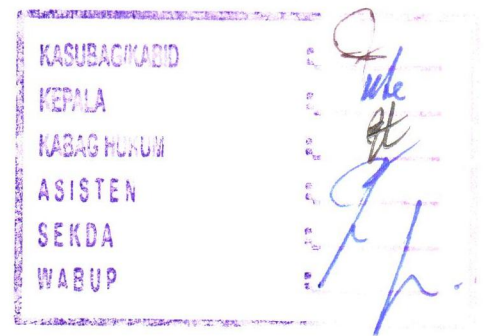 KASUBAG/KABID :
KEPALA :
KABAG HUKUM :
ASISTEN :
SEKDA :
WABUP :